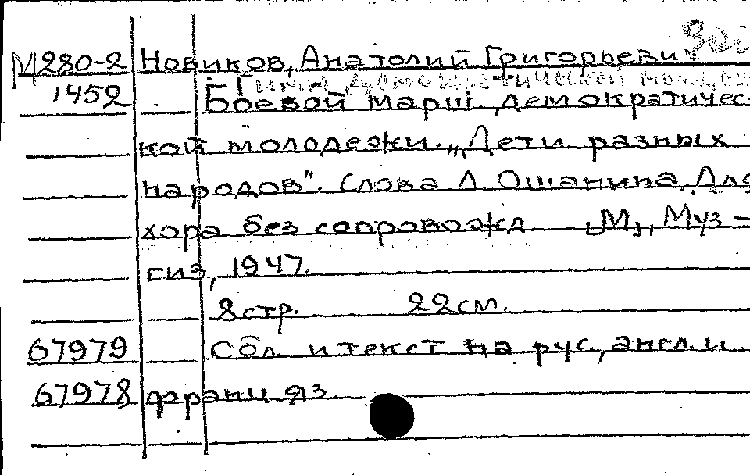 М280-2 Новиков, Анатолий Григорьевич
1452 Боевой марш демократичес-
кой молодежи. „Дети разных
народов". Слова Л. Ошанина. Для
хора без сопровожд. М., Муз-
гиз, 1947.
8 стр. 22 см.
67979 Обл. и текст на рус., англ. и
67978 франц. яз.